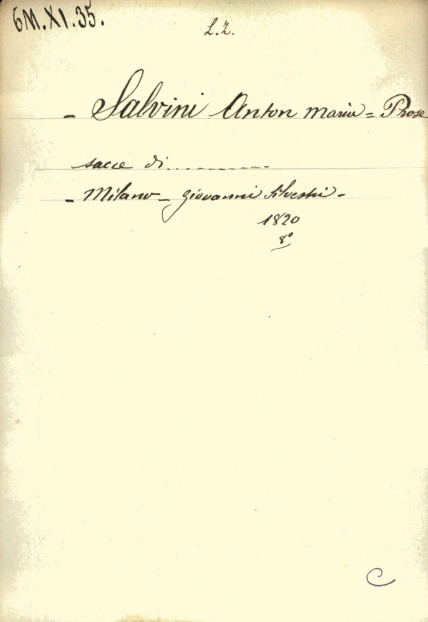 6M.XI.35.
L.2.
- Salvini Anton Maria = Prose
sacre di.............
- Milano - Giovanni Silvestri -
1820
8°
C